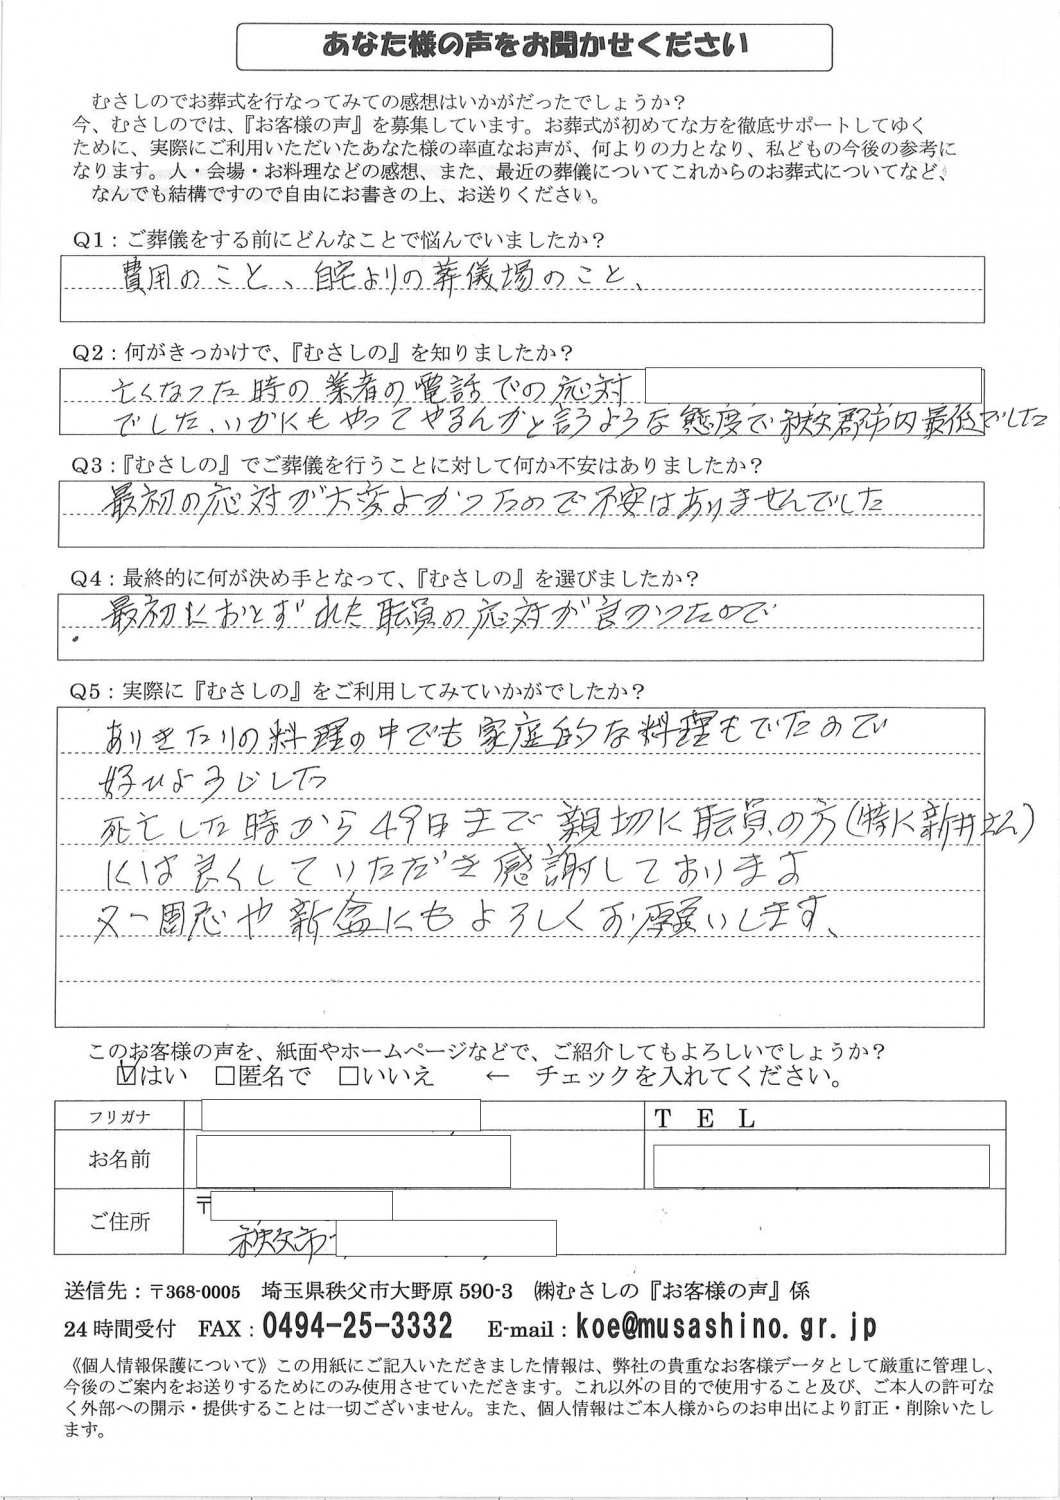 あなた様の声をお聞かせください
むさしのでお葬式を行なってみての感想はいかがだったでしょうか？
今、むさしのでは、『お客様の声』を募集しています。お葬式が初めてな方を徹底サポートしてゆく
ために、実際にご利用いただいたあなた様の率直なお声が、何よりの力となり、私どもの今後の参考に
なります。人・会場・お料理などの感想、また、最近の葬儀についてこれからのお葬式についてなど、
なんでも結構ですので自由にお書きの上、お送りください。
Q1：ご葬儀をする前にどんなことで悩んでいましたか？
費用のこと、自宅よりの葬儀場のこと、
Q2：何がきっかけで、『むさしの』を知りましたか？
亡くなった時の業者の電話での応対
でした、いかにもやってやるんだと言うような態度で秩父郡市内最低でした
Q3：『むさしの』でご葬儀を行うことに対して何か不安はありましたか？
最初の応対が大変よかったので不安はありませんでした
Q4：最終的に何が決め手となって、『むさしの』を選びましたか？
最初におとずれた職員の応対が良かったので
Q5：実際に『むさしの』をご利用してみていかがでしたか？
ありきたりの料理の中でも家庭的な料理もでたので
好ひようじした
死亡した時から49日まで親切に職員の方(特に新井さん)
には良くしていただき感謝しております
又一周忌や新盆にもよろしくお願いします、
このお客様の声を、紙面やホームページなどで、ご紹介してもよろしいでしょうか？
☑はい □匿名で □いいえ ← チェックを入れてください。
フリガナ TEL
お名前
〒
ご住所
秩父市
送信先：〒368-0005 埼玉県秩父市大野原 590-3 ㈱むさしの『お客様の声』係
24 時間受付 FAX：0494-25-3332 E-mail：koe@musashino.gr.jp
《個人情報保護について》この用紙にご記入いただきました情報は、弊社の貴重なお客様データとして厳重に管理し、
今後のご案内をお送りするためにのみ使用させていただきます。これ以外の目的で使用すること及び、ご本人の許可な
く外部への開示・提供することは一切ございません。また、個人情報はご本人様からのお申出により訂正・削除いたし
ます。